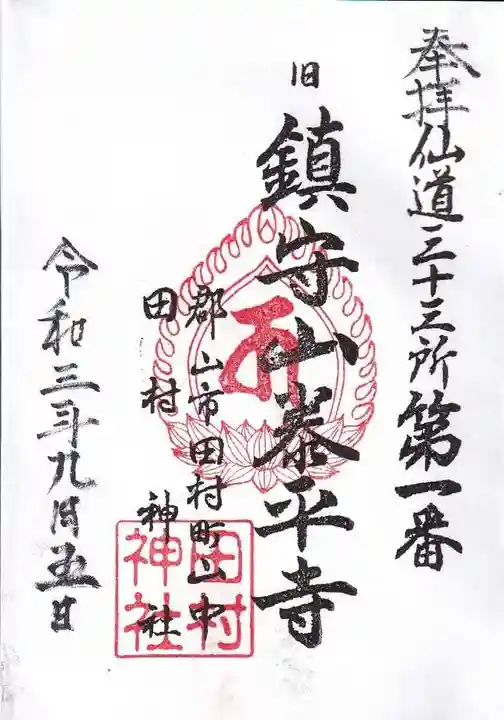 奉拝仙道三十三所第一番
旧
鎮守山泰平寺
郡山市田村町山中
田村神社
令和三年九月五日
田村
神社